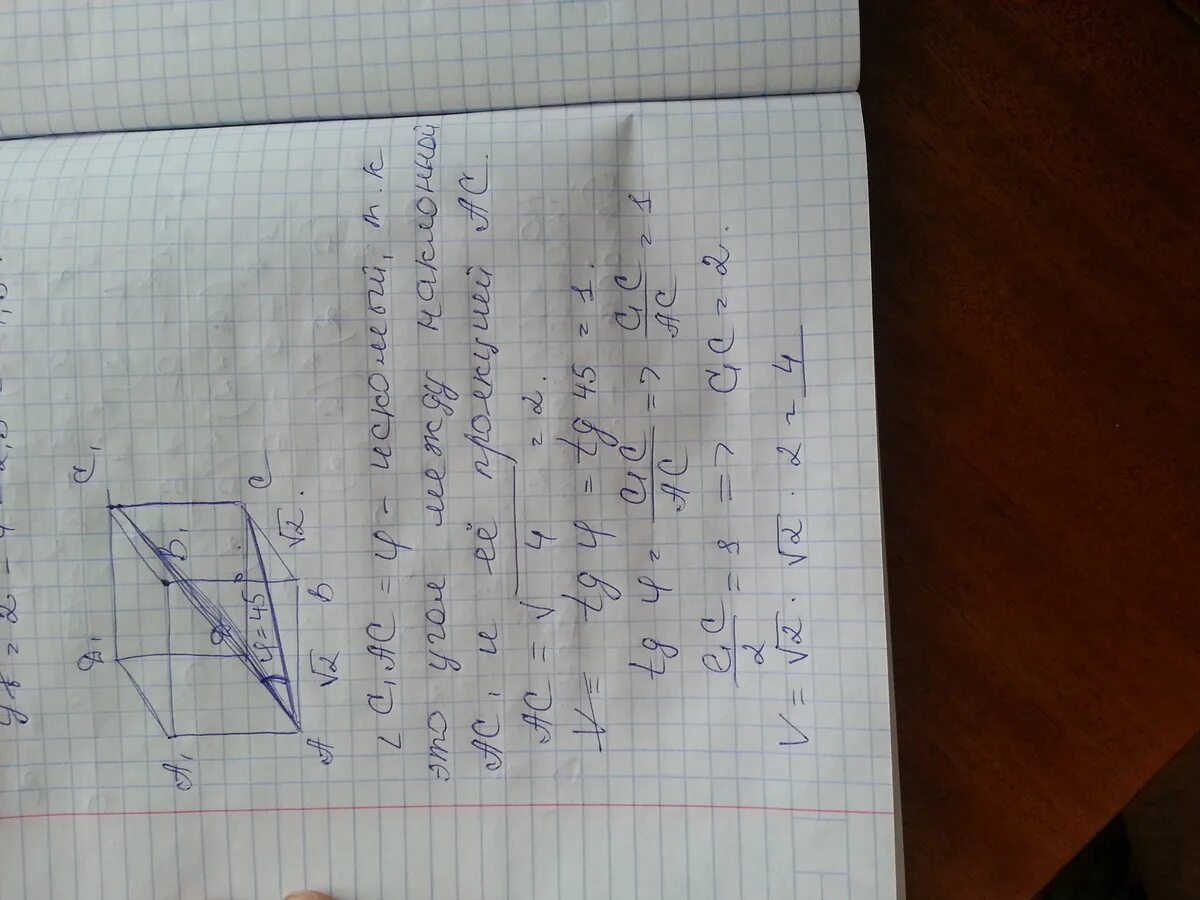 D₁ C₁
A₁ B₁
D φ=45° C
√2.
A √2 B
∠ C₁AC = φ - искомый, т.к
это угол между наклонной
AC₁ и её проекцией AC.
AC = √4 = 2.
tg φ = tg 45 = 1.
tg φ = C₁C/AC => C₁C/AC = 1
C₁C/2 = 1 => C₁C = 2.
V = √2 · √2 · 2 = 4